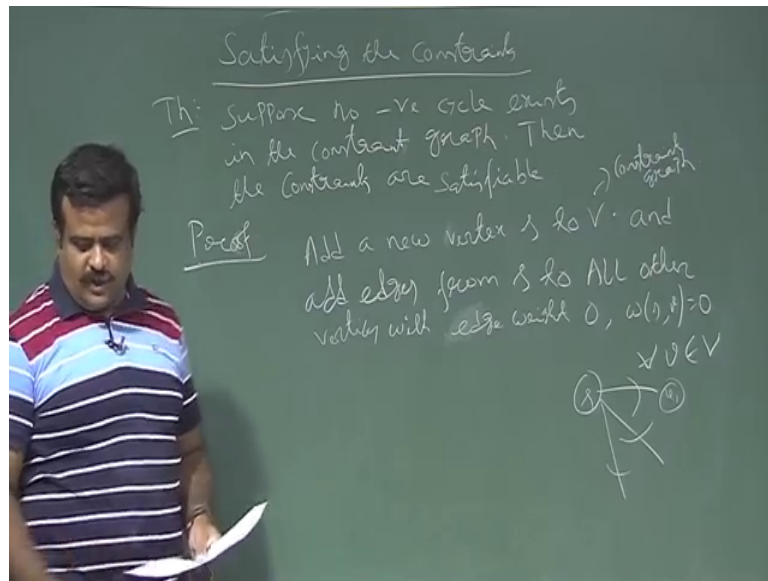 Satisfying the Constraints
Th: Suppose no -ve cycle exists
in the constraint graph. Then
the constraints are satisfiable
constraint
graph.
Proof Add a new vertex s to V. and
add edges from s to ALL other
vertices with edge weight 0, w(s,v)=0
∀ v ∈ V
s v1